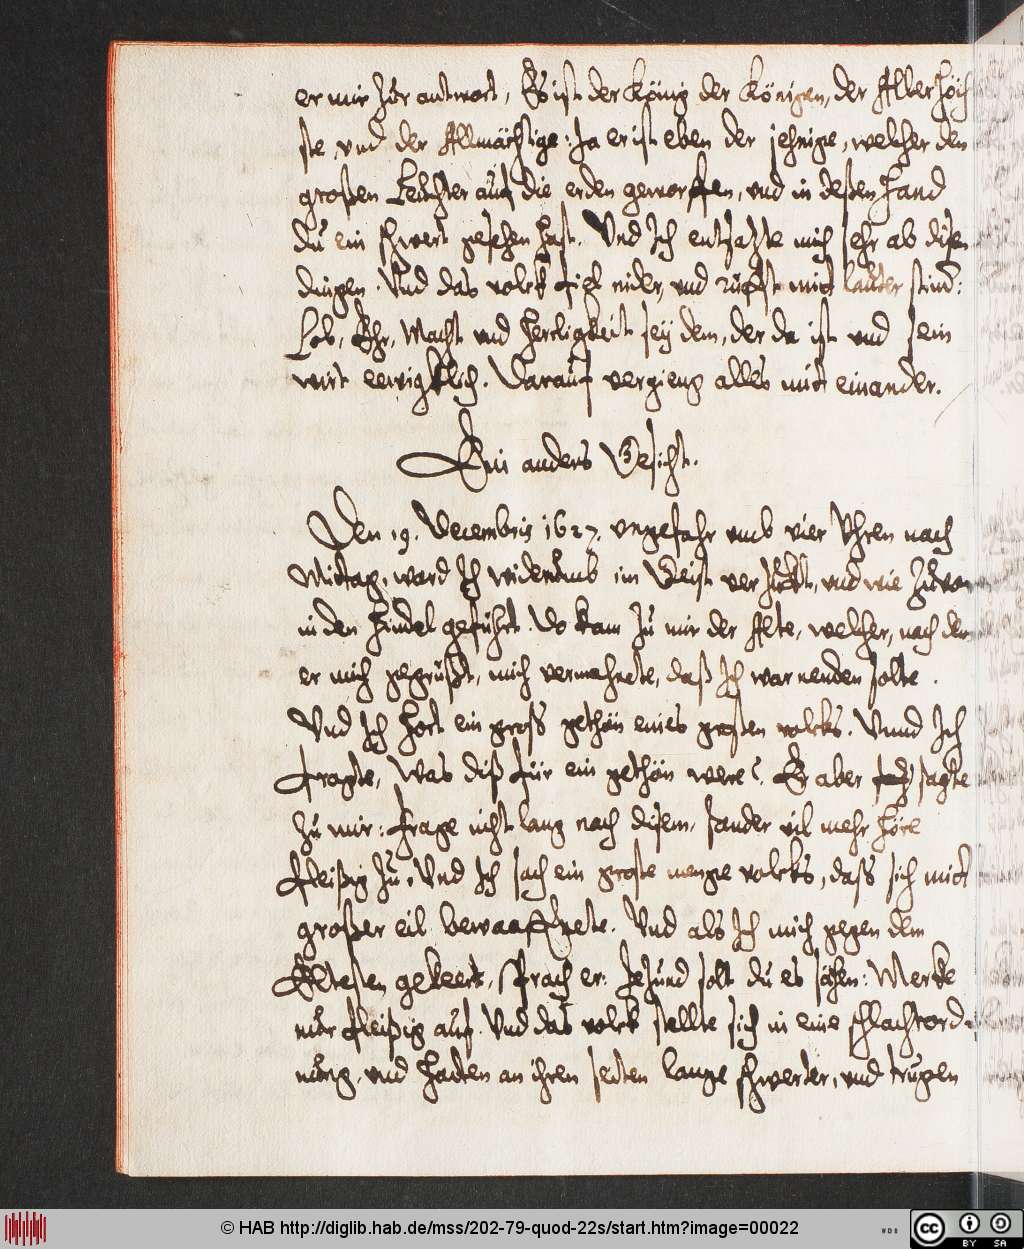 er mir zur antwort, Es ist der König der Königen, der Aller höch-
ste und der Allmächtige: Ja er ist eben der jehnige, welcher den
großen Leuchter auf die erden geworffen, und in deßen hand
du ein schwert gesehen hast. Und Ich entsatzte mich sehr ab disen
dingen. Und das volck fiel nider, und rufft mit lauter stim̄:
Lob, Ehr, Macht und Herrligkeit seÿ dem, der da ist und sein
wirt eewigklich. Darauf vergieng alles mit einander.
Ein anders Gesicht.
Den 19. Decembris 1627. ungefahr umb vier Uhren nach
Mittag, ward Ich widerumb im Geist verzuckt, und wie zuvor
in den himel geführt. Do kam zu mir der Alte, welcher, nach dem
er mich gegrüßt, mich vermahnete, daß Ich war nemen solte.
Und Ich hort ein groß gethön eines großen volcks. Unnd Ich
fragte, Was diß für ein gethön were? Er aber sagte
zu mir: Frage nicht lang nach disem, sonder vil mehr höre
fleißig zu. Und Ich sach ein große menge volcks, dass sich mitt
großer eil bewaaffnete. Und als Ich mich gegen dem
Eltesten gekeert, sprach er: Jezund solt du es sähen: Merke
nur fleißig auf. Und das volck stellte sich in eine schlachtord-
nung, und hatten an ihren seiten lange schwerter, und trugen
© HAB http://diglib.hab.de/mss/202-79-quod-22s/start.htm?image=00022
WDB
cc BY SA